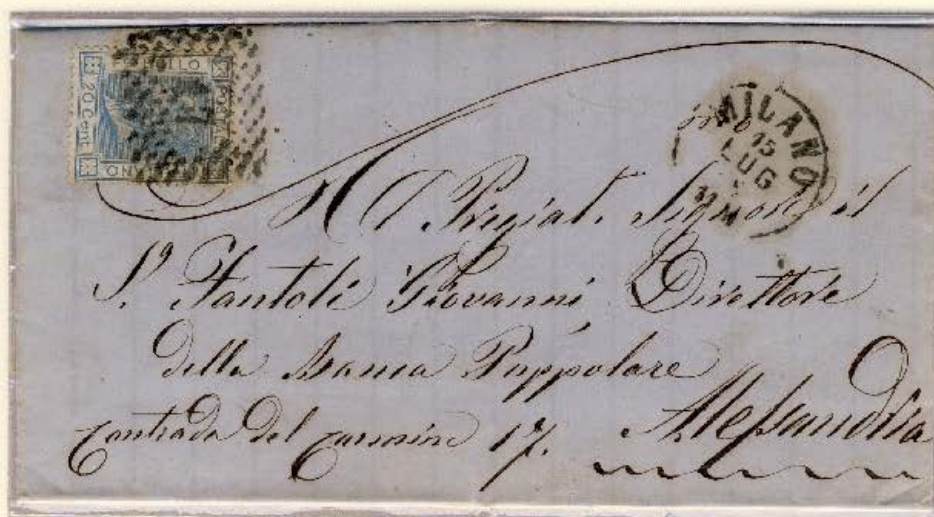 20 Cent
MILANO
15
LUG
M
Al Pregiat. Signore il
Sr. Fantoli Giovanni, Direttore
della Banca Poppolare
Contrada del 17. Alessandria